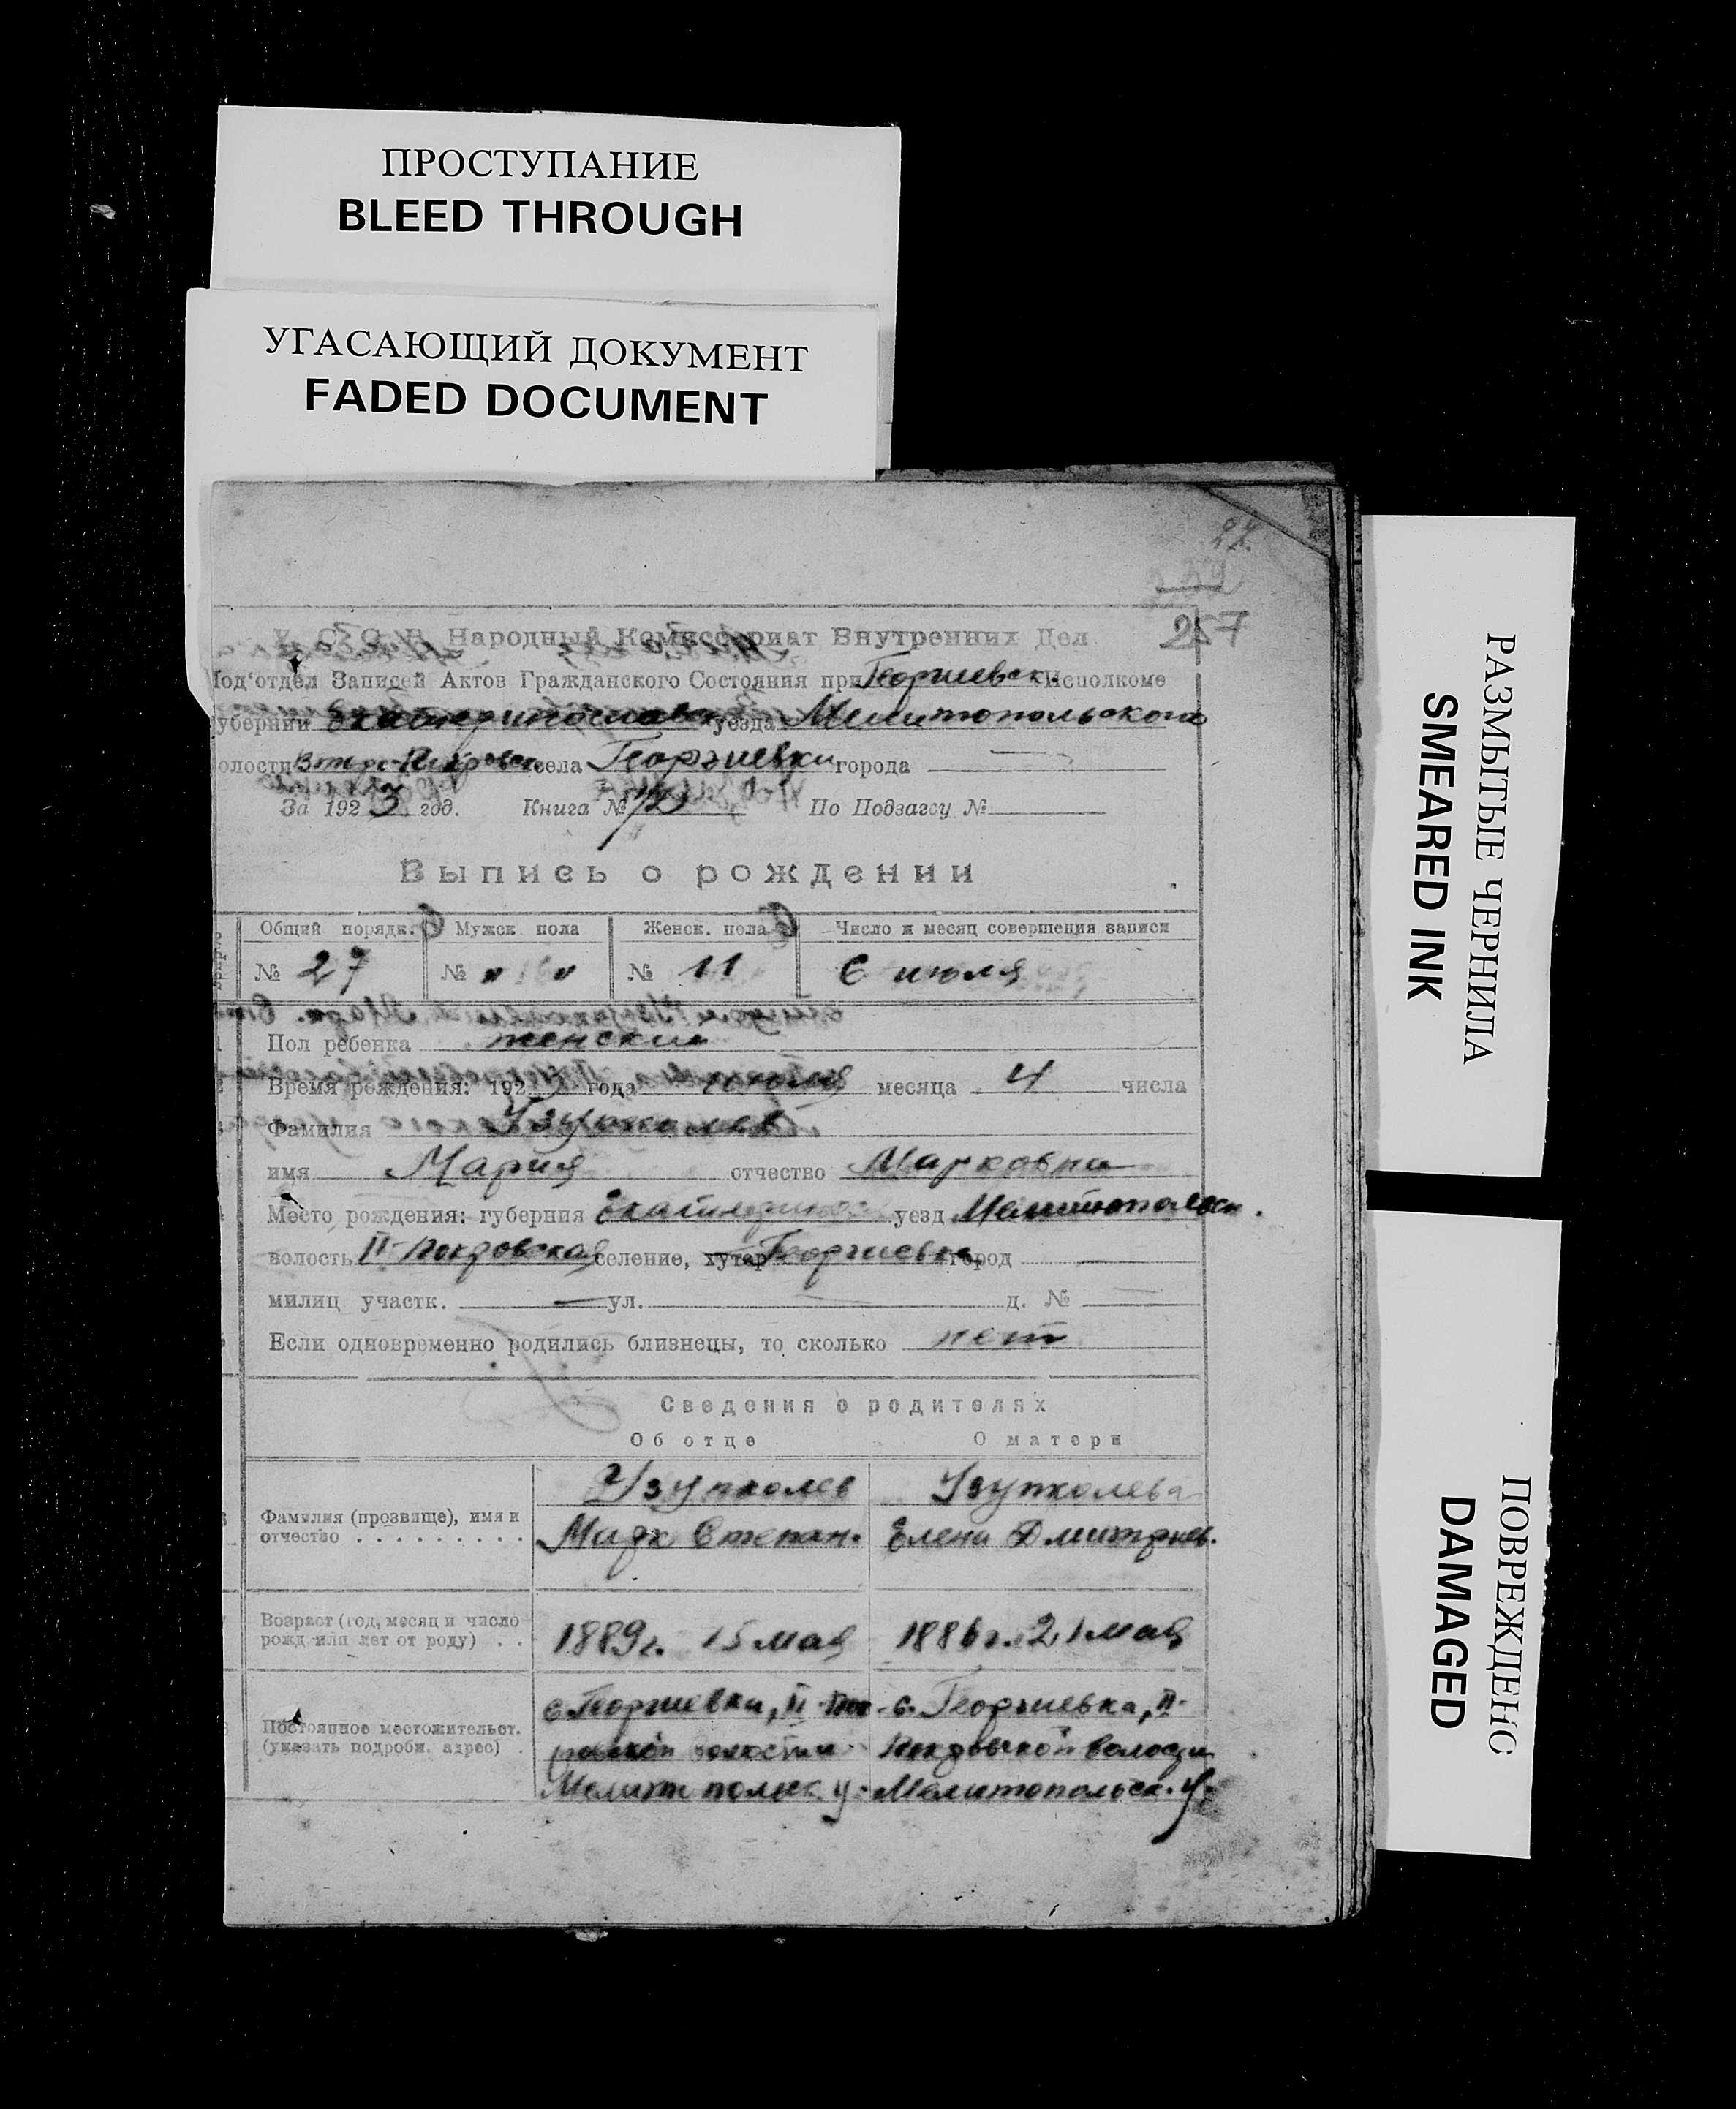 ПРОСТУПАНИЕ
BLEED THROUGH
УГАСАЮЩИЙ ДОКУМЕНТ
FADED DOCUMENT
257
У. С. С. Р. Народный Комиссариат Внутренних Дел
Под'отдел Записей Актов Гражданского Состояния при Георгиевск. Исполкоме
губернии Екатеринославск уезда Мелитопольского
волости села Георгиевки города
За 1923 год. Книга № По Подзагсу №
Выпись о рождении
Общий порядк. Мужск пола Женск. пола Число и месяц совершения записи
№ 27 № " " № 11 6 июля
Пол ребенка женский
Время рождения: 192 года июля месяца 4 числа
Фамилия
имя Мария отчество Марковна
Место рождения: губерния Екатеринос уезд Мелитопольск.
волость II-Покровская селение, хутор Георгиевка город
милиц участк. — ул. — д. № —
Если одновременно родились близнецы, то сколько нет
Сведения о родителях
Об отце О матери
Фамилия (прозвище), имя и отчество . . . . . . . . .
Узунколев
Марк Степан.
Узунколева
Елена Дмитриев.
Возраст (год, месяц и число рожд или лет от роду) . .
1889г. 15 мая
1886г. 21 мая
Постоянное местожительст. (указать подробн. адрес) .
с. Георгиевки, II Пок-
ровской волости
Мелитопольск. у.
с. Георгиевка, II-
Покровской волости
Мелитопольск. у.
РАЗМЫТЫЕ ЧЕРНИЛА
SMEARED INK
ПОВРЕЖДЕНО
DAMAGED